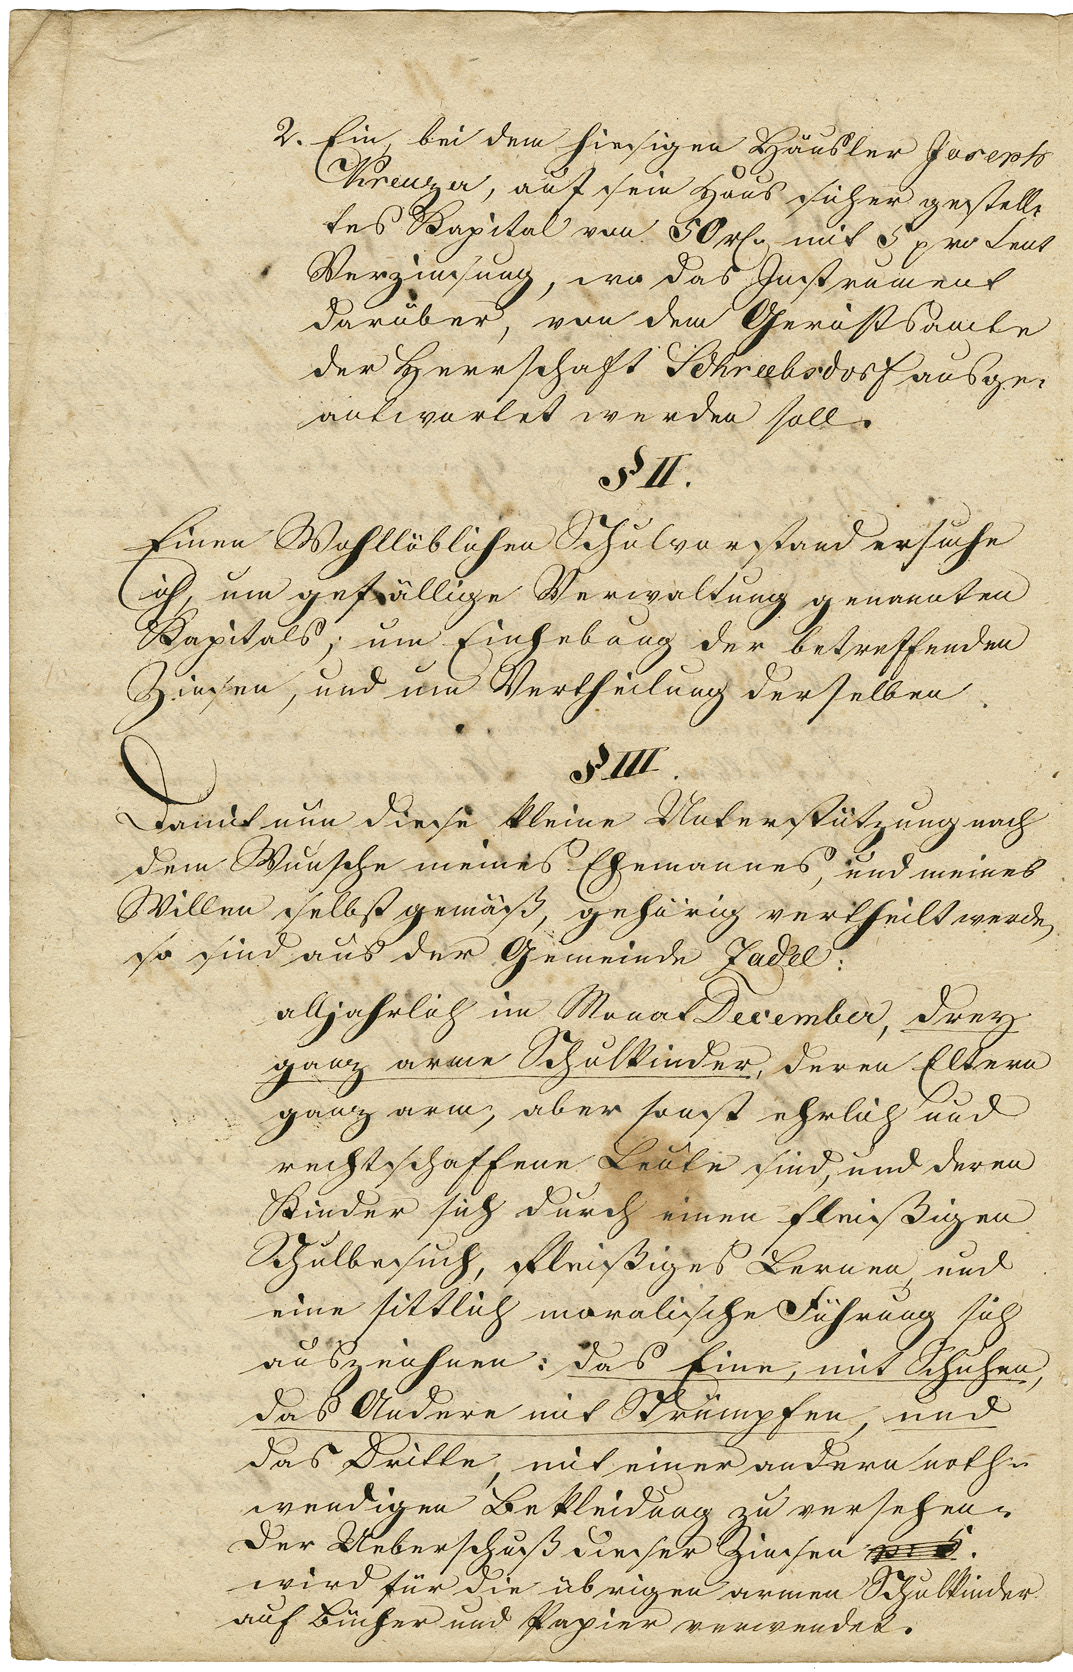 2. Ein, bei dem hiesigen Häusler Joseph
Kreuzer, auf sein Haus sicher gestell-
tes Kapital von 50 rf. mit 5 pro Cent
Verzinsung, wo das Instrument
darüber, von dem Gerichtsamte
der Herrschaft Schreebsdorf ausge-
antwortet werden soll.
§ II.
Einen Wohllöblichen Schulvorstand ersuche
ich, um gefällige Verwaltung genannten
Kapitals, um Einhebung der betreffenden
Zinsen, und um Vertheilung derselben.
§ III.
Damit nun diese kleine Unterstützung nach
dem Wunsche meines Ehemannes, und meines
Willen selbst gemäß, gehörig vertheilt werde,
so sind aus der Gemeinde Zadel:
alljahrlich im Monat December, drey
ganz arme Schulkinder, deren Eltern
ganz arm, aber sonst ehrlich und
rechtschaffene Leute sind, und deren
Kinder sich durch einen fleißigen
Schulbesuch, fleißiges Lernen, und
eine sittlich moralische Führung sich
auszeichnen: das Eine, mit Schuhen,
das Andere mit Strümpfen, und
das Dritte, mit einer andern noth-
wendigen Bekleidung zu versehen.
Der Ueberschuß dieser Zinsen
wird für die übrigen armen Schulkinder
auf Bücher und Papier verwendet.